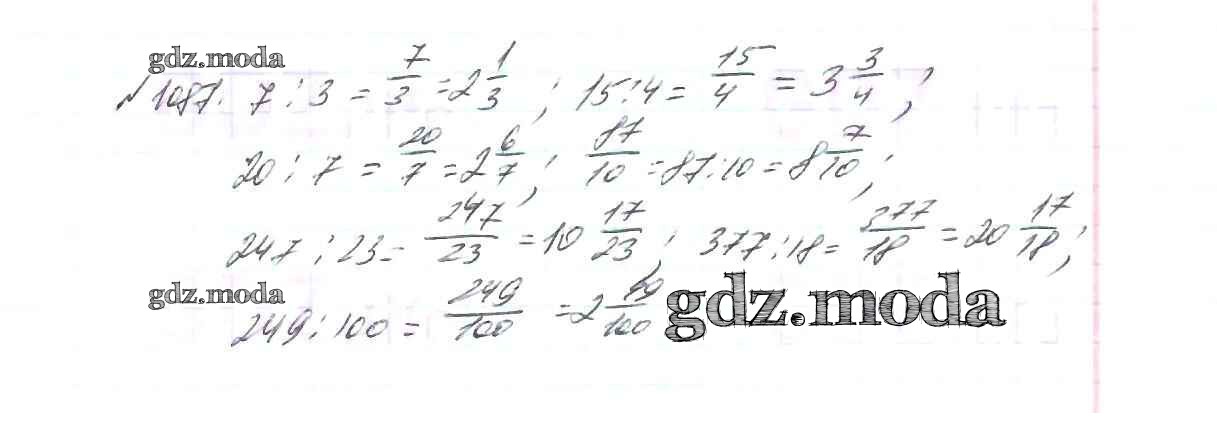 gdz.moda
№1087. 7 : 3 = 7/3 = 2 1/3 ; 15 : 4 = 15/4 = 3 3/4 ;
20 : 7 = 20/7 = 2 6/7 ; 87/10 = 87 : 10 = 8 7/10 ;
247 : 23 = 247/23 = 10 17/23 ; 377 : 18 = 377/18 = 20 17/18 ;
gdz.moda
249 : 100 = 249/100 = 2 49/100
gdz.moda